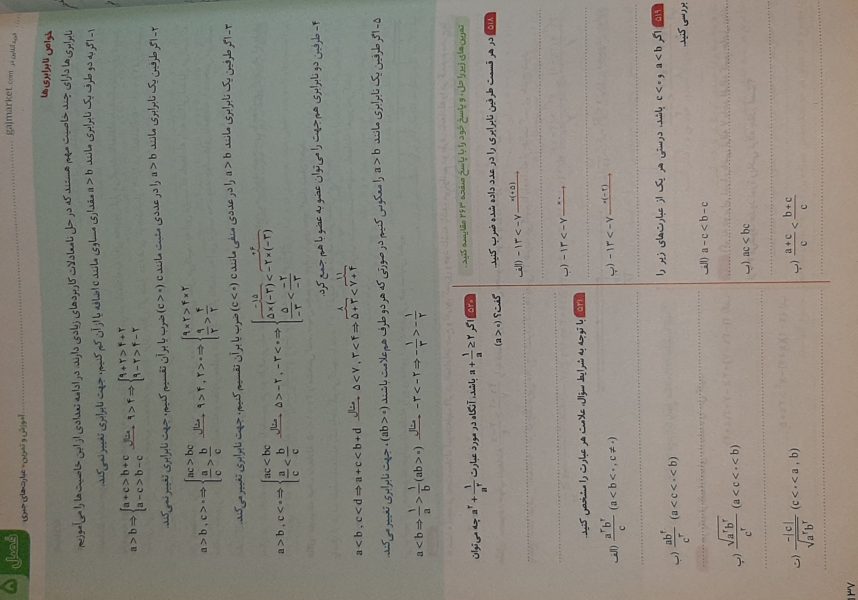 فصل ۵
آموزش و تمرین • عبارت‌های جبری
خرید آنلاین در gajmarket.com
خواص نابرابری‌ها
نابرابری‌ها دارای چند خاصیت مهم هستند که در حل نامعادلات کاربردهای زیادی دارند. در ادامه تعدادی از این خاصیت‌ها را می‌آموزیم.
۱- اگر به دو طرف یک نابرابری مانند a > b مقداری مساوی مانند c اضافه یا از آن کم کنیم، جهت نابرابری تغییر نمی‌کند.
a > b ⇒ { a + c > b + c , a − c > b − c مثال → ۹ > ۴ ⇒ { ۹ + ۲ > ۴ + ۲ , ۹ − ۲ > ۴ − ۲
۲- اگر طرفین یک نابرابری مانند a > b را در عددی مثبت مانند c (c > ۰) ضرب یا بر آن تقسیم کنیم، جهت نابرابری تغییر نمی‌کند.
a > b , c > ۰ ⇒ { ac > bc , a/c > b/c مثال → ۹ > ۴ , ۲ > ۰ ⇒ { ۹ × ۲ > ۴ × ۲ , ۹/۲ > ۴/۲
۳- اگر طرفین یک نابرابری مانند a > b را در عددی منفی مانند c (c < ۰) ضرب یا بر آن تقسیم کنیم، جهت نابرابری تغییر می‌کند.
a > b , c < ۰ ⇒ { ac < bc , a/c < b/c مثال → ۵ > −۲ , −۳ < ۰ ⇒ { ۵ × (−۳) < −۲ × (−۳) , ۵/−۳ < −۲/−۳
−۱۵ +۶
۴- طرفین دو نابرابری هم‌جهت را می‌توان عضو به عضو با هم جمع کرد.
a < b , c < d ⇒ a + c < b + d مثال → ۵ < ۷ , ۳ < ۴ ⇒ ۵ + ۳ < ۷ + ۴
۸ ۱۱
۵- اگر طرفین یک نابرابری مانند a > b را معکوس کنیم در صورتی که هر دو طرف هم‌علامت باشند (ab > ۰)، جهت نابرابری تغییر می‌کند.
a < b ⇒ ۱/a > ۱/b (ab > ۰) مثال → −۳ < −۲ ⇒ −۱/۳ > −۱/۲
تمرین‌های زیر را حل، و پاسخ خود را با پاسخ صفحه ۲۶۳ مقایسه کنید.
۵۱۸ در هر قسمت طرفین نابرابری را در عدد داده شده ضرب کنید.
الف) −۱۳ < −۷ ×(+۵) →
ب) −۱۳ < −۷ ×۰ →
پ) −۱۳ < −۷ ×(−۲) →
۵۱۹ اگر a < b و c < ۰ باشد، درستی هر یک از عبارت‌های زیر را
بررسی کنید.
الف) a − c < b − c
ب) ac < bc
پ) a + c/c < b + c/c
۵۲۰ اگر a + ۱/a ≥ ۲ باشد، آنگاه در مورد عبارت a² + ۱/a² چه می‌توان
گفت؟ (a > ۰)
۵۲۱ با توجه به شرایط سؤال، علامت هر عبارت را مشخص کنید.
الف) a²b²/c (a < b < ۰ , c ≠ ۰)
ب) ab²/c² (a < c < ۰ < b)
پ) √a²b²/c² (a < c < ۰ < b)
ت) −|c|/√a²b² (c < ۰ < a , b)
۱۳۷